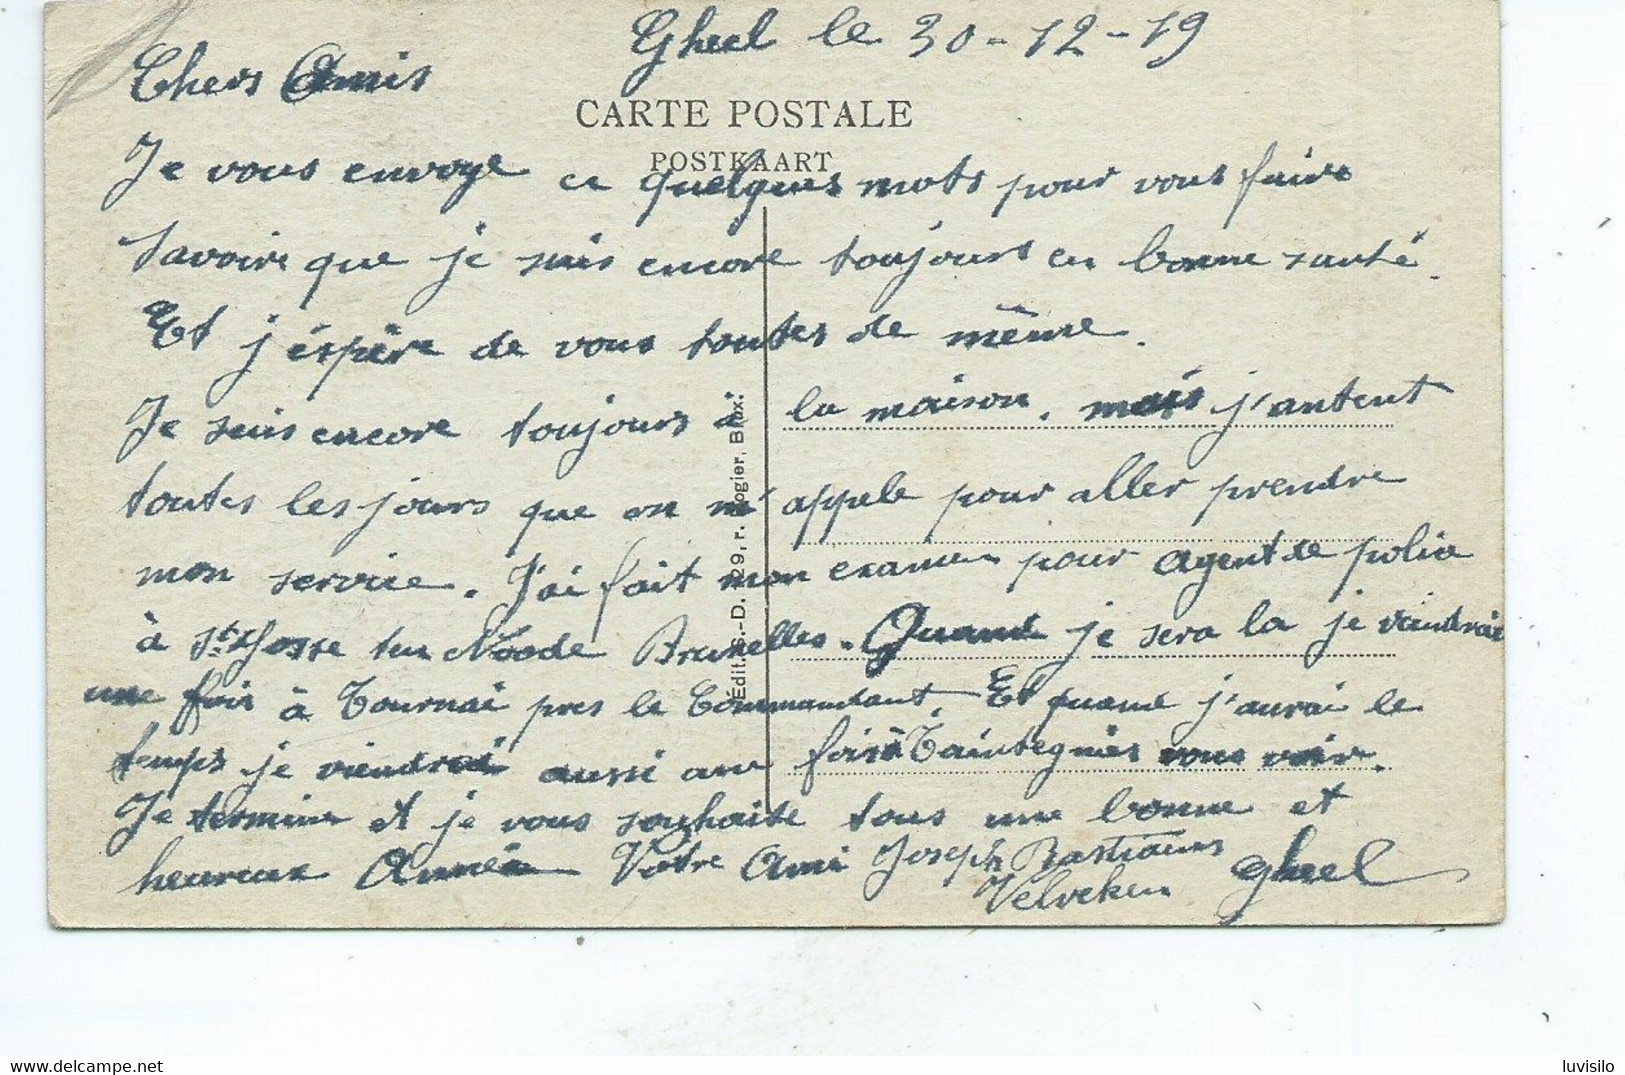 Gheel le 30-12-19
Chers Amis
CARTE POSTALE
POSTKAART
Je vous envoye ce quelques mots pour vous faire
savoire que je suis encore toujours en bonne santé.
Et j'éspère de vous toutes de même.
Je suis encore toujours à la maison, mais j'antent
toutes les jours que on m'appele pour aller prendre
mon service. J'ai fait mon examen pour agent de police
à St Josse ten Noode Bruxelles. Quand je sera la je viendrai
une fois à Tournai pres le Commandant. Et quand j'aurai le
temps je viendrai aussi une fois à Taintegnies vous voir.
Je termine et je vous souhaite tous une bonne et
heureuse Année Votre Ami Joseph Bastiaens
Velveken Gheel
Édit. S.-D. 129, r. Rogier, Brux.
luvisilo